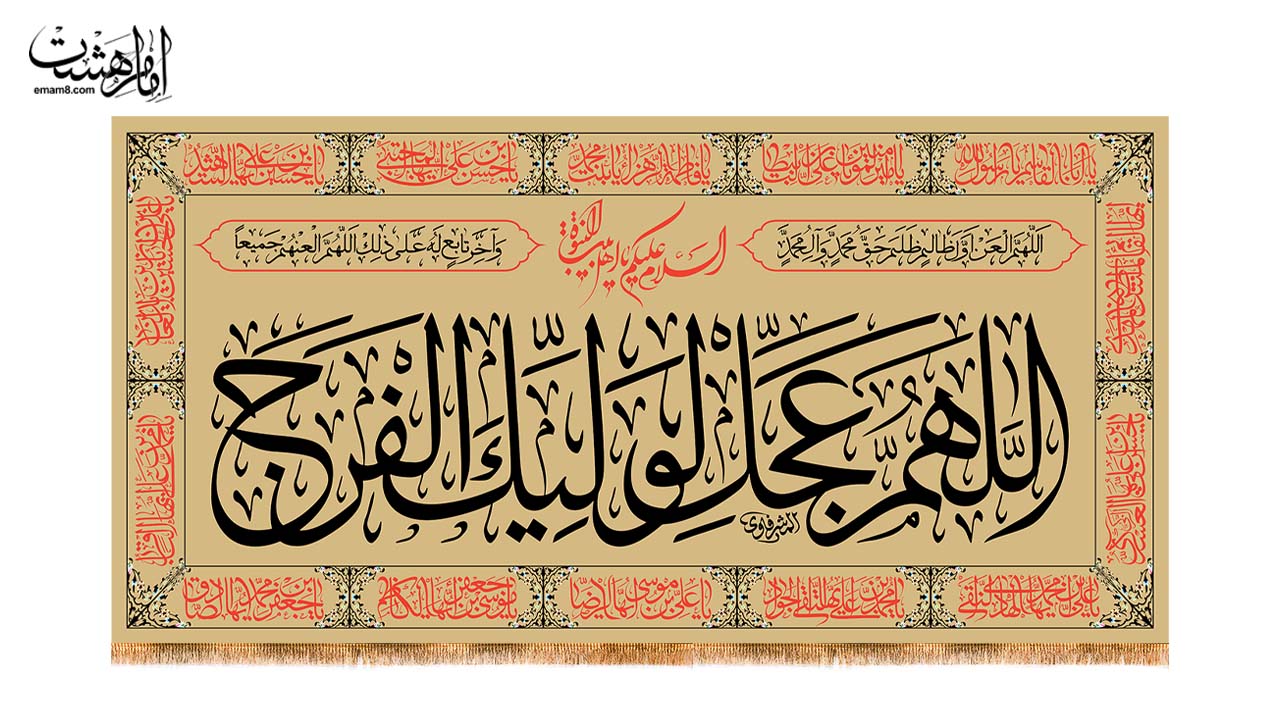 امام هشت
emam8.com
یا اباالقاسم یا رسول الله
یا امیرالمؤمنین یا علی
یا فاطمة الزهراء یا بنت محمد
یا حسن بن علی ایها المجتبی
یا حسین بن علی ایها الشهید
اَللّهُمَّ الْعَنْ اَوَّلَ ظالِمٍ ظَلَمَ حَقَّ مُحَمَّدٍ وَآلِ مُحَمَّدٍ
السلام علیکم یا اهل بیت النبوة
وَآخِرَ تابِعٍ لَهُ عَلی ذلِکَ اَللّهُمَّ الْعَنْهُمْ جَمیعاً
اللَّهُمَّ عَجِّلْ لِوَلِیِّکَ الْفَرَجَ
المشرفاوی
یا علی بن محمد ایها الهادی النقی
یا محمد بن علی ایها التقی الجواد
یا علی بن موسی ایها الرضا
یا موسی بن جعفر ایها الکاظم
یا جعفر بن محمد ایها الصادق